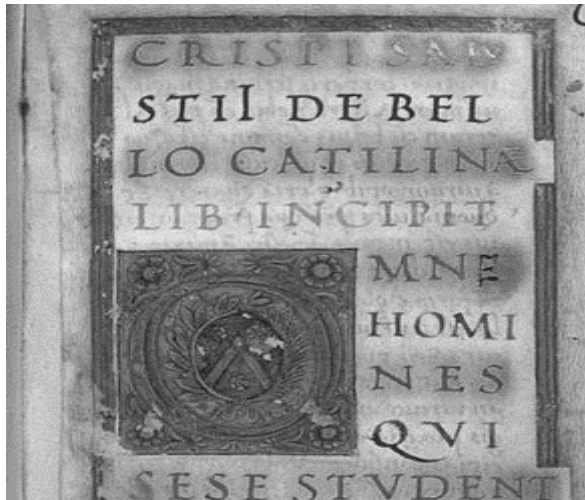 CRISPI SALV
STII DE BEL
LO CATILINÆ
LIB·INCIPIT
OMNE
HOMI
NES
QVI
SESE STVDENT